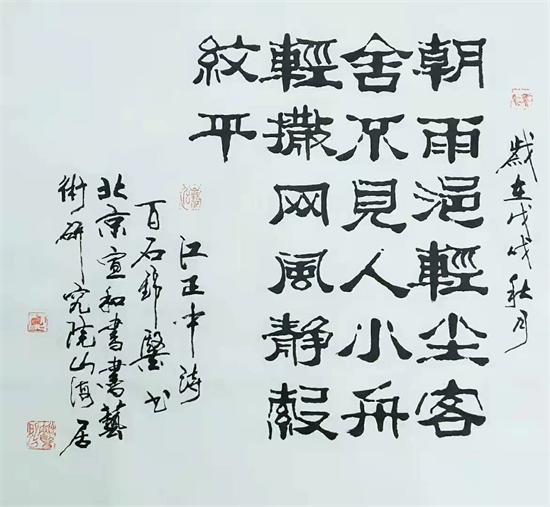 歲在戊戌秋月
朝雨浥輕尘客
舍不見人小舟
輕撒网風静縠
紋平
江正中诗
百石书
北京宣和書畫藝
術研究院山海居